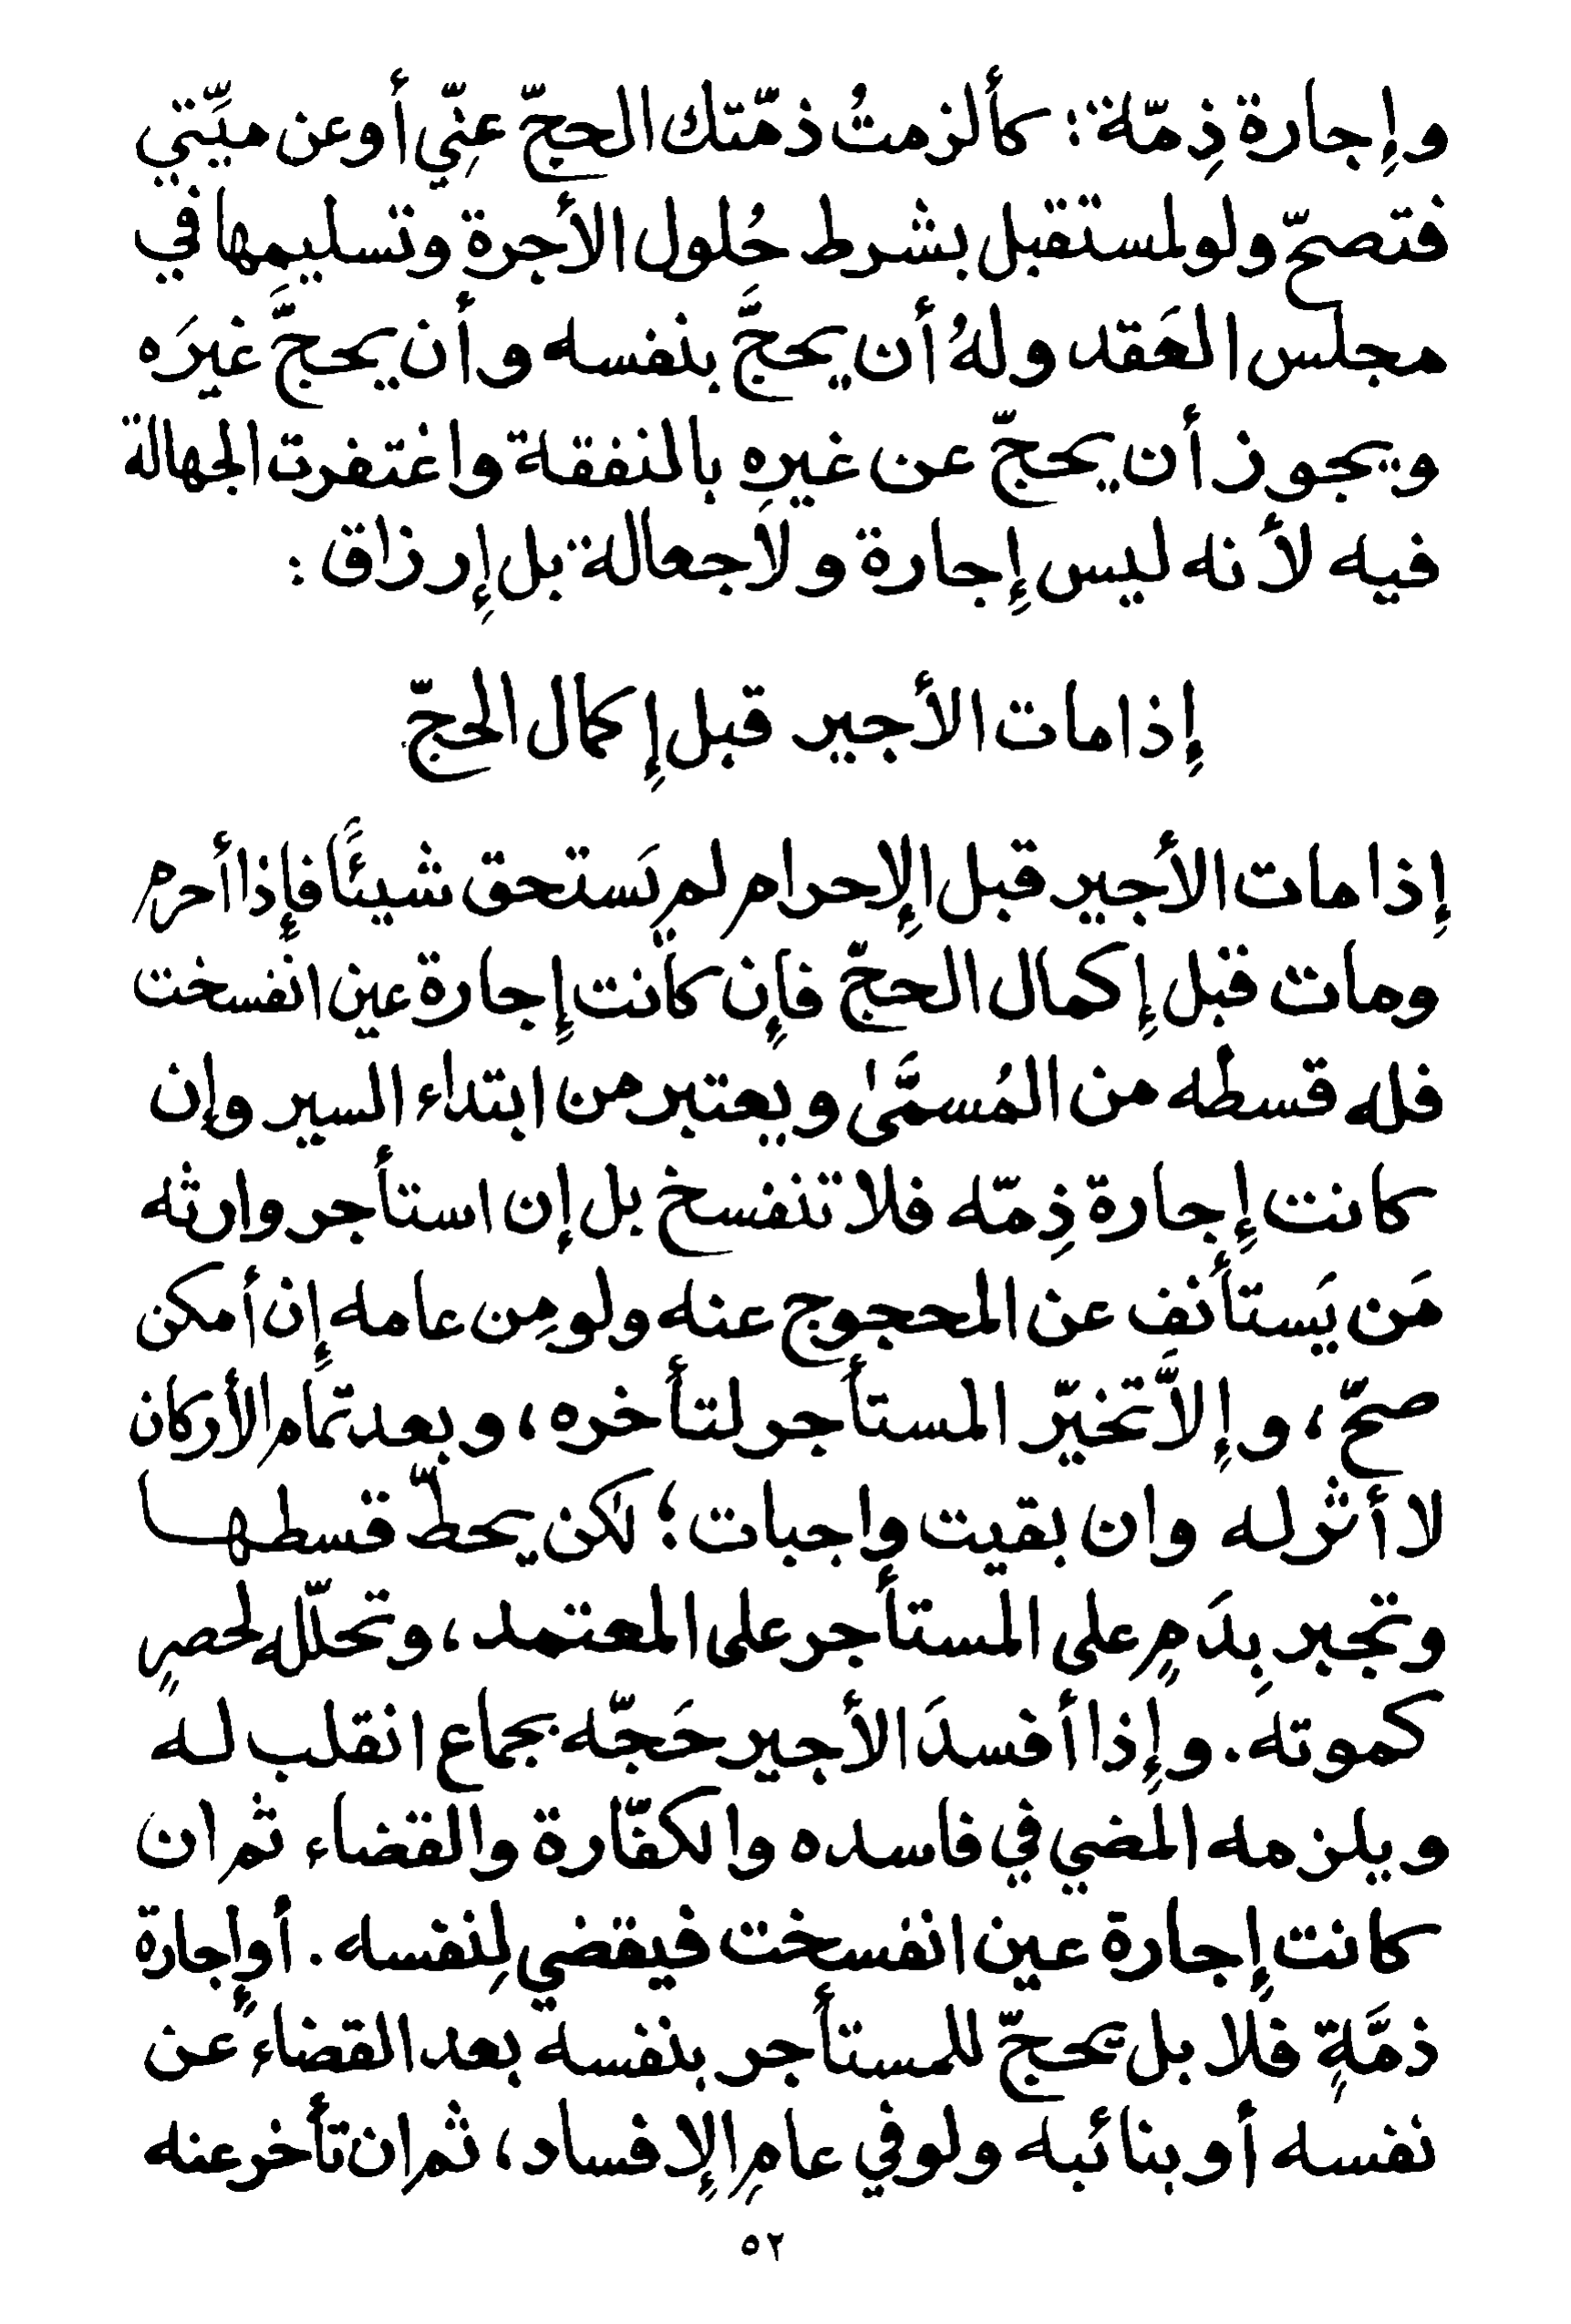 وإِجارة ذِمّة: كألزمتُ ذمّتك الحجّ عنِّي أو عن ميِّتي
فتصحّ ولو لمستقبل بشرط حُلول الأجرة وتسليمها في
مجلس العَقد ولهُ أن يحجَّ بنفسه وأن يحجَّ غيرَه
ويجوز أن يحجّ عن غيره بالنفقة واغتفرت الجهالة
فيه لأنه ليس إِجارة ولا جعالة بل إِرزاق :
إِذا مات الأجير قبل إِكمال الحجّ
إِذا مات الأجير قبل الإِحرام لم يَستحق شيئًا فإِذا أحرم
ومات قبل إِكمال الحجّ فإِن كانت إِجارة عين انفسخت
فله قسطه من المُسمَّىٰ ويعتبر من ابتداء السير وإن
كانت إِجارة ذِمّه فلا تنفسخ بل إن استأجر وارثه
مَن يَستأنف عن المحجوج عنه ولو مِن عامه إِن أمكن
صحّ، وإِلاَّ تخيّر المستأجر لتأخره، وبعد تمام الأركان
لا أثر له وان بقيت واجبات؛ لكن يحطّ قسطها
وتجبر بِدَمٍ على المستأجر على المعتمد، وتحلّله لحصرٍ
كموته. وإِذا أفسدَ الأجير حَجّه بجماع انقلب له
ويلزمه المضي في فاسده والكفّارة والقضاء ثم ان
كانت إِجارة عين انفسخت فيقضي لِنفسه. أو إِجارة
ذمَّةٍ فلا بل يحجّ للمستأجر بنفسه بعد القضاء عن
نفسه أو بنائبه ولو في عامِ الإِفساد، ثم ان تأخر عنه
٥٢